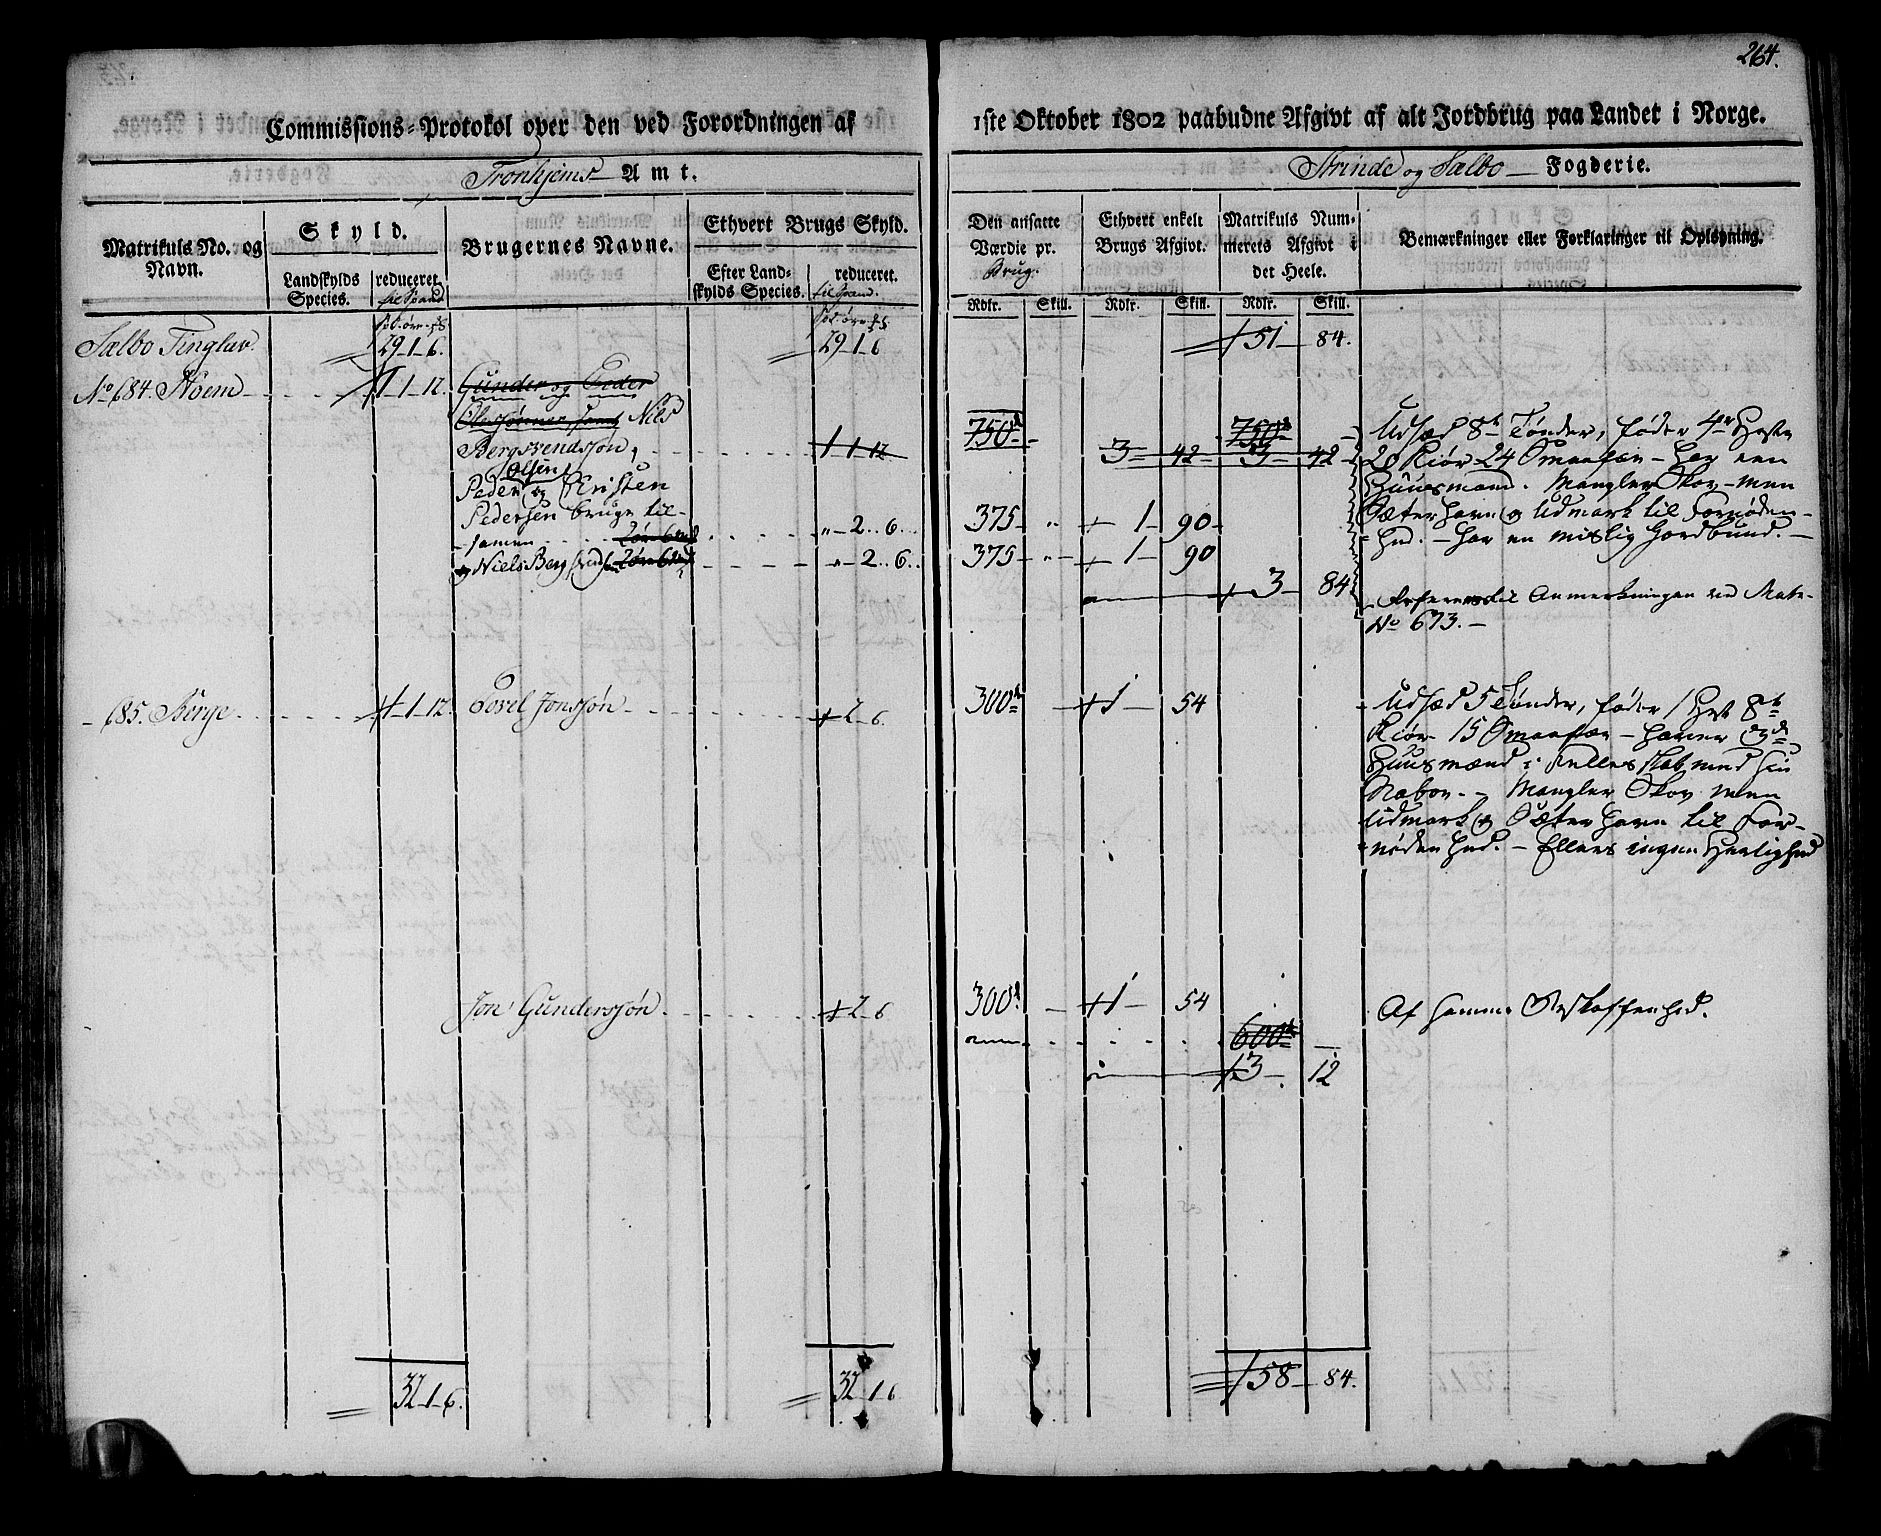 264.
Commissions-Protokol over den ved Forordningen af 1ste Oktober 1802 paabudne Afgivt af alt Jordbrug paa Landet i Norge.
Tronhjems Amt. Strinde og Sælbo Fogderie.
Matrikuls No. og Navn.
Skyld.
Landskylds Species.
reduceret til Spand
Brugernes Navne.
Ethvert Brugs Skyld.
Efter Landskylds Species.
reduceret. til Spand.
Den ansatte Værdie pr. Brug.
Ethvert enkelt Brugs Afgivt.
Matrikuls Nummerets Afgivt i det Heele.
Bemærkninger eller Forklaringer til Oplysning.
Rdlr. Skill. Rdlr. Skill. Rdlr. Skill.
Sælbo Tinglav. 29-1-6. 29-1-6 151- 84.
No 684. Moem 1-1-12. Gunder og Peder
Olessønner, samt Nils
Bergsvendssøn, 1-1-12 750 3- 42- 750 3- 42
Olsen
Peder og Christen
Pedersen bruge til-
samen 2..6. 375- " 1- 90-
og Niels Bergsvends. 2..6. 375- " 1- 90
3- 84
Udsæd 8te Tønder, føder 4re Heste
20 Kiør 24 Smaafæ - har een
Huusmand. Mangler Skov - men
Sæterhavn og Udmark til Fornøden-
hed. - har en mislig Jordbund. -
Refereres til Anmærkningen ved Matr.
No 673. -
685. Berge 1-1-12. Povel Jonssøn 2-6 300 1- 54
Udsæd 5 Tønder, føder 1 Hest 8te
Kiør 15 Smaafæ - haver
Huusmænd i Fellesskab med sin
Naboe. - Mangler Skov men
Udmark og Sæterhavn til For-
nødenhed. - Ellers ingen Herlighed
Jon Gunderssøn 2-6 300 1- 54
Af samme Beskaffenhed.
600
3- 12
32-1-6. 32-1-6 158- 84.